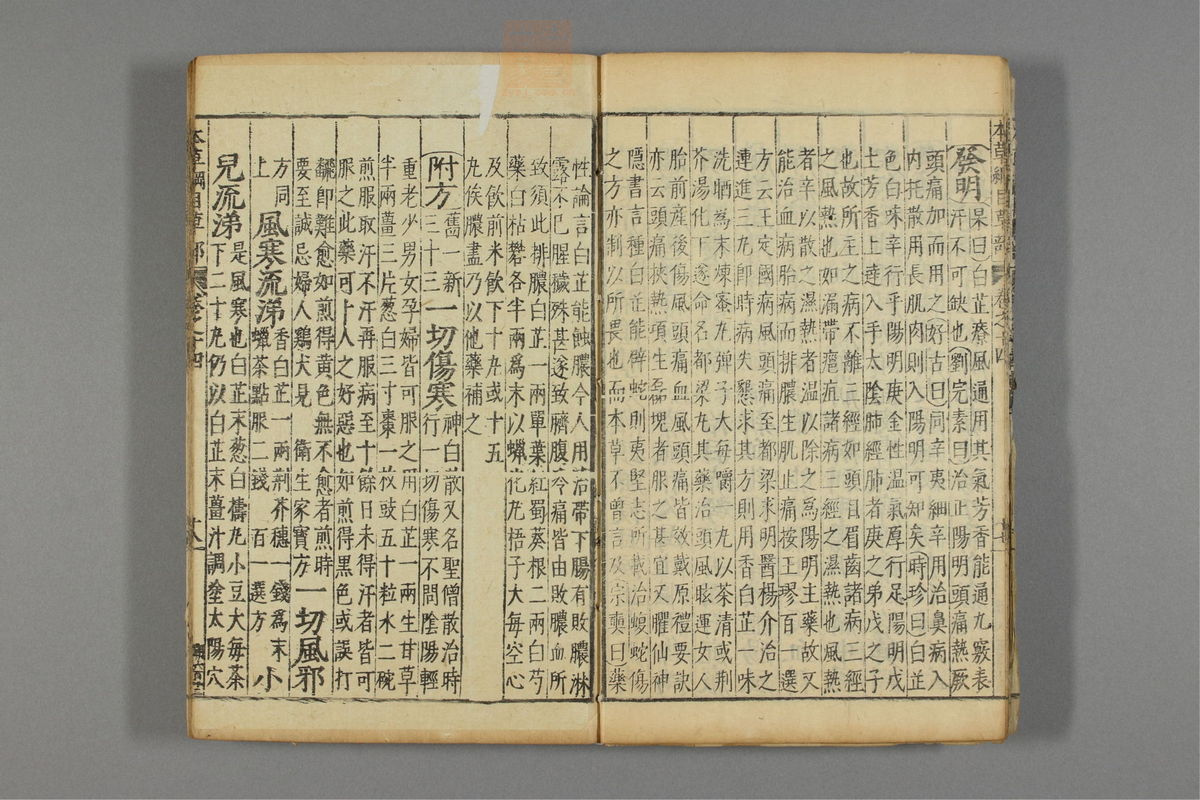 發明杲曰白芷療風通用其氣芳香能通九竅表
汗不可缺也劉完素曰治正陽明頭痛熱厥
頭痛加而用之好古曰同辛夷細辛用治鼻病入
內托散用長肌肉則入陽明可知矣時珍曰白芷
色白味辛行手陽明庚金性溫氣厚行足陽明戊
土芳香上達入手太陰肺經肺者庚之弟戊之子
也故所主之病不離三經如頭目眉齒諸病三經
之風熱也如漏帶癰疽諸病三經之濕熱也風熱
者辛以散之濕熱者溫以除之爲陽明主藥故又
能治血病胎病而排膿生肌止痛按王璆百一選
方云王定國病風頭痛至都梁求明醫楊介治之
連進三丸即時病失懇求其方則用香白芷一味
洗晒爲末煉蜜丸彈子大每嚼一丸以茶清或荆
芥湯化下遂命名都梁丸其藥治頭風眩運女人
胎前産後傷風頭痛血風頭痛皆效戴原禮要訣
亦云頭痛挾熱項生磊塊者服之甚宜又臞仙神
隱書言種白芷能辟蛇則夷堅志所載治蝮蛇傷
之方亦制以所畏也而本草不曾言及宗奭曰藥
性論言白芷能蝕膿今人用治帶下腸有敗膿淋
露不已腥穢殊甚遂致臍腹冷痛皆由敗膿血所
致須此排膿白芷一兩單葉紅蜀葵根二兩白芍
藥白枯礬各半兩爲末以蠟化丸梧子大每空心
及飲前米飲下十丸或十五
丸俟膿盡乃以他藥補之
附方舊一新三十三一切傷寒神白散又名聖僧散治時
行一切傷寒不問陰陽輕
重老少男女孕婦皆可服之用白芷一兩生甘草
半兩薑三片葱白三寸棗一枚豉五十粒水二碗
煎服取汗不汗再服病至十餘日未得汗者皆可
服之此藥可卜人之好惡也如煎得黑色或誤打
飜卽難愈如煎得黄色無不愈者煎時
要至誠忌婦人鷄犬見 衛生家寶方一切風邪
方同上風寒流涕香白芷一兩荆芥穗一錢爲末
蠟茶點服二錢 百一選方小
兒流涕是風寒也白芷末葱白擣丸小豆大每茶
下二十丸仍以白芷末薑汁調塗太陽穴
本草綱目草部